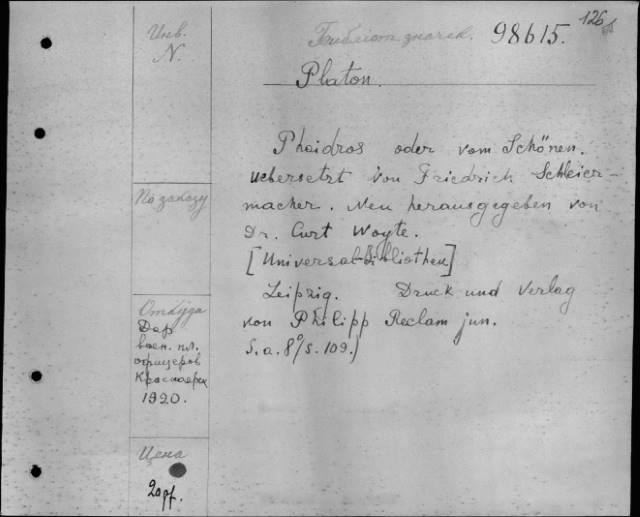 Инв.
N.
Библиот. значек. 98615.
126
Platon.
Phaidros oder vom Schönen.
uebersetzt von Friedrich Schleier-
macher. Neu herausgegeben von
Dr. Curt Woyte.
[Universal-Bibliothek]
Leipzig. Druck und Verlag
von Philipp Reclam jun.
S.a. 8º/s. 109.)
По заказу
Откуда
Дар
воен. пл.
офицеров
Красноярск
1920.
Цена
20 pf.